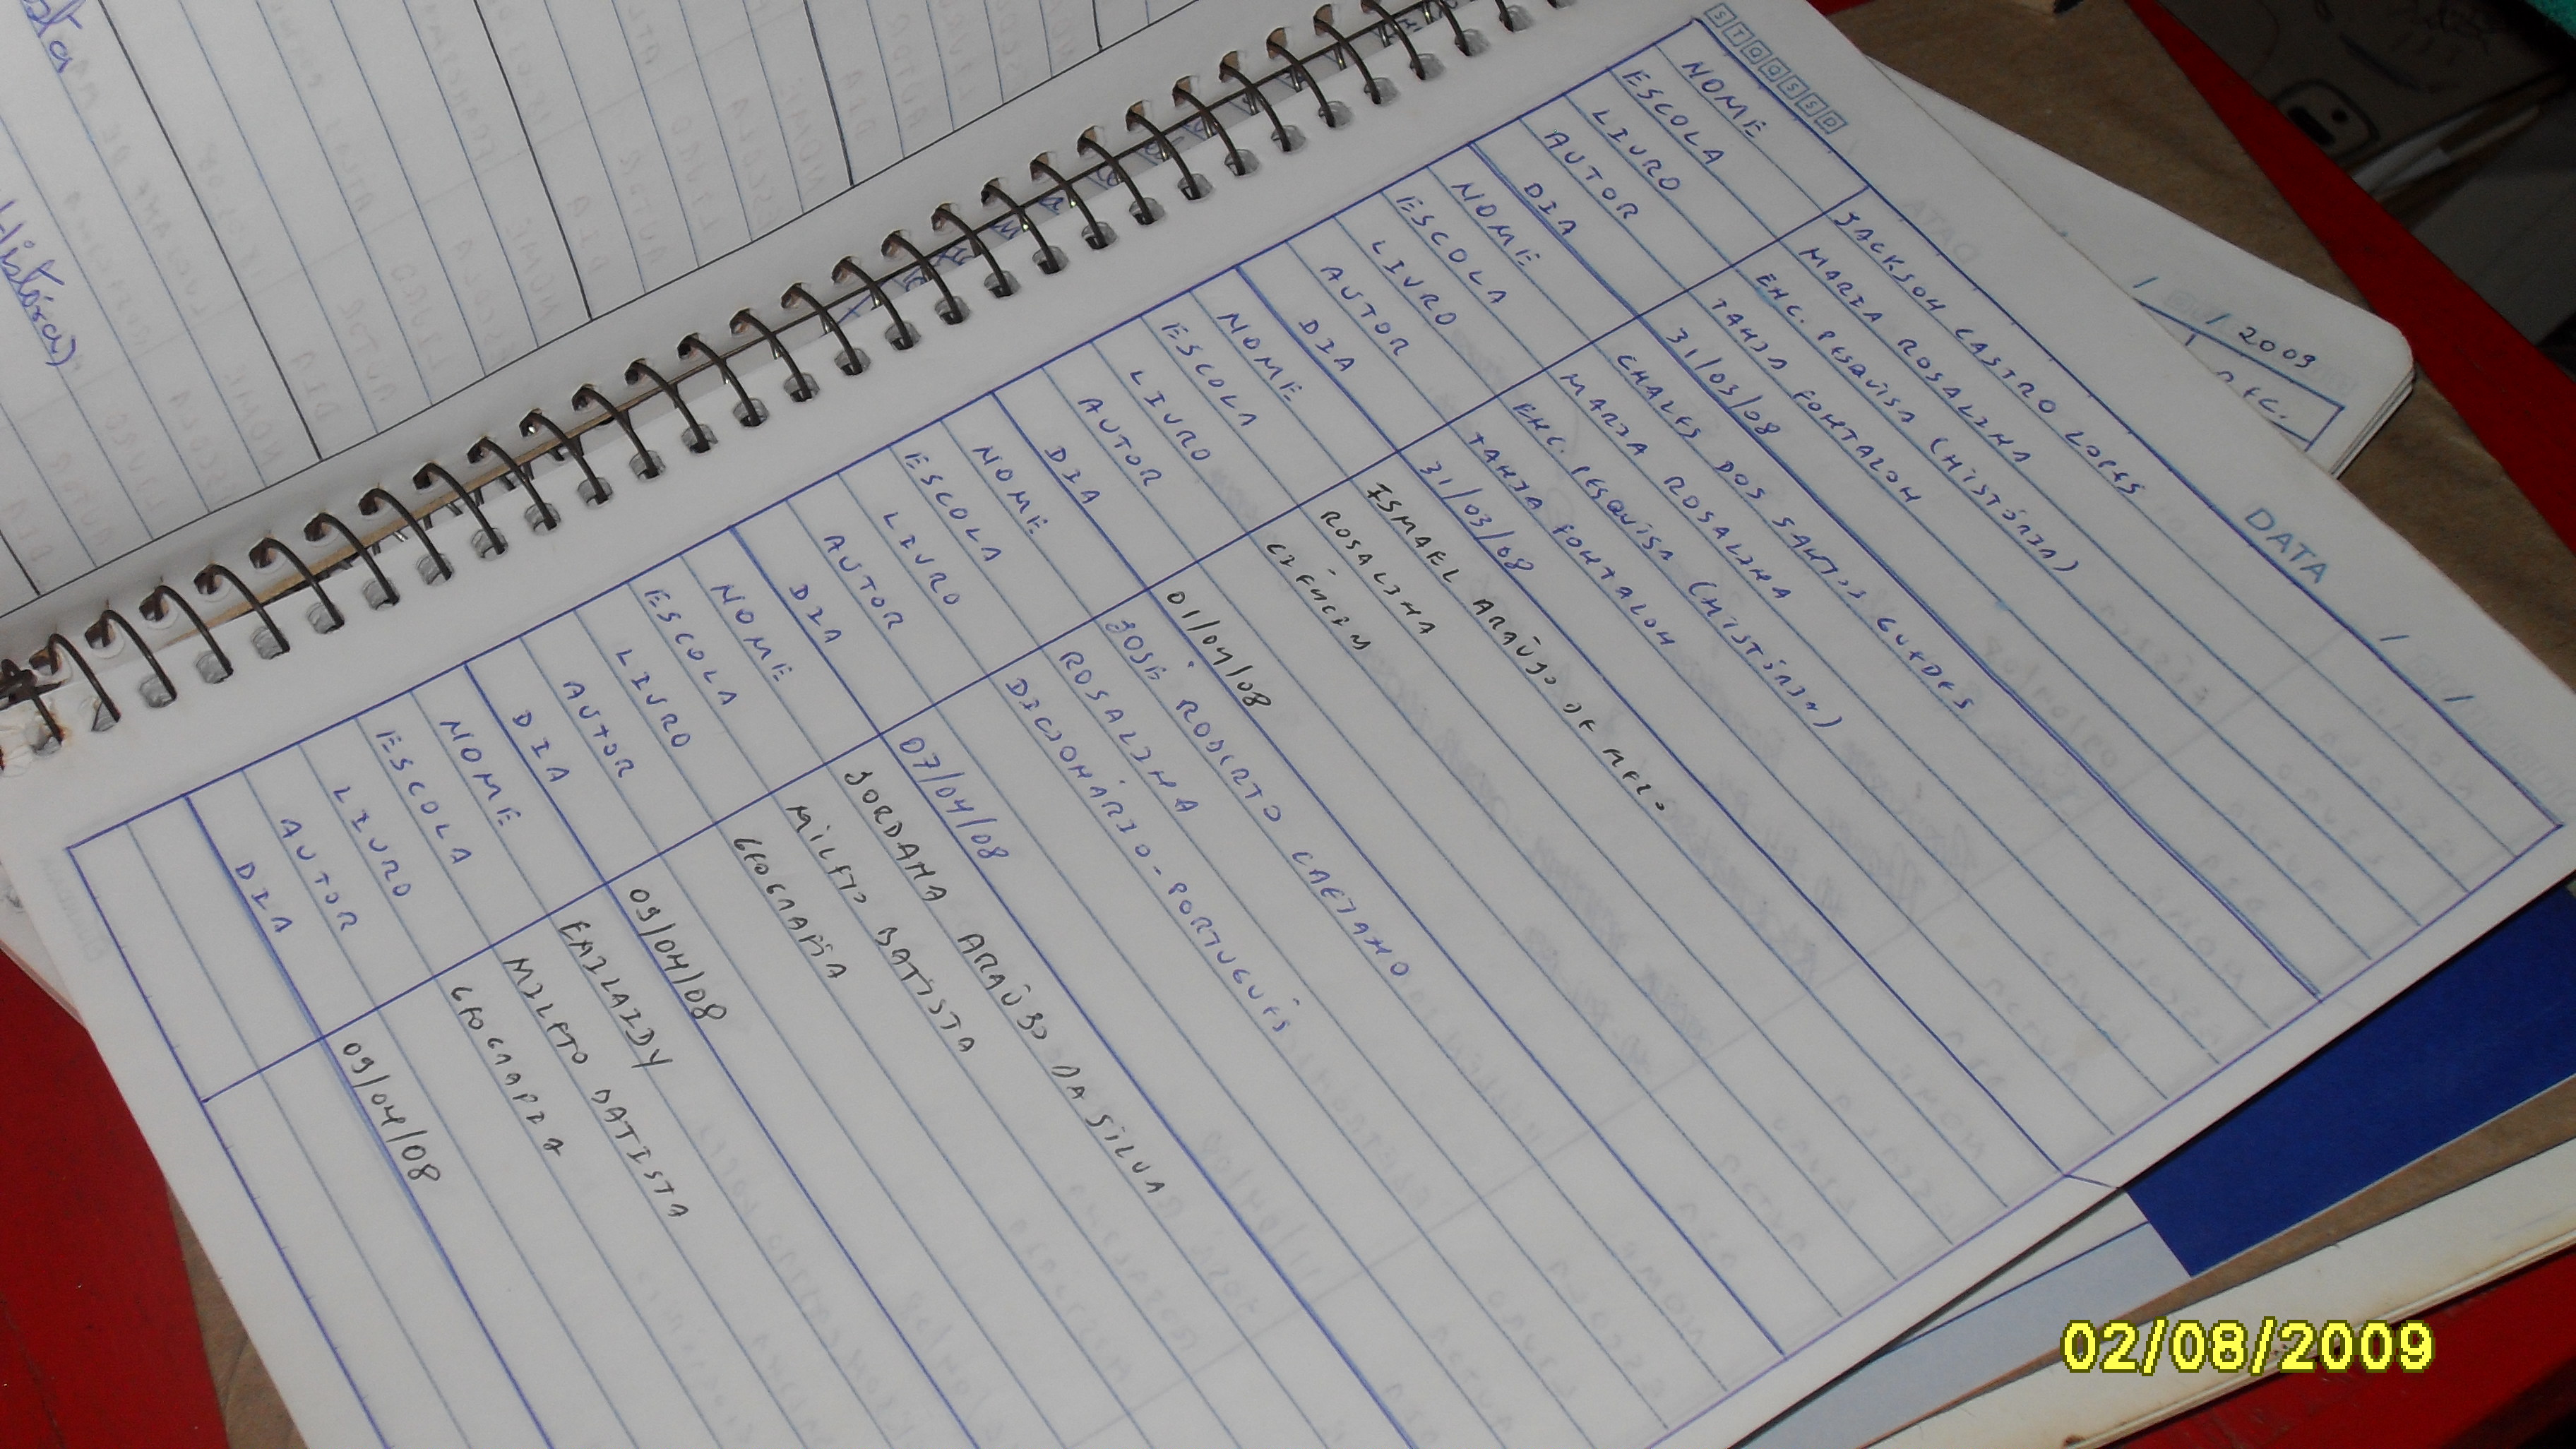 STQQSSD
DATA / /
NOME JACKSON CASTRO LOPES
ESCOLA MARIA ROSALINA
LIVRO ENC. PESQUISA (HISTÓRIA)
AUTOR TANIA FONTALON
DIA 31/03/08
NOME CHALES DOS SANTOS GUEDES
ESCOLA MARIA ROSALINA
LIVRO ENC. PESQUISA (HISTÓRIA)
AUTOR TANIA FONTALON
DIA 31/03/08
NOME ISMAEL ARAÚJO DE MELO
ESCOLA ROSALINA
LIVRO CIÊNCIA
AUTOR
DIA 01/04/08
NOME JOSÉ ROBERTO CAETANO
ESCOLA ROSALINA
LIVRO DICIONÁRIO - PORTUGUÊS
AUTOR
DIA 07/04/08
NOME JORDANA ARAÚJO DA SILVA
ESCOLA MILETO BATISTA
LIVRO GEOGRAFIA
AUTOR
DIA 09/04/08
NOME EMILAIDY
ESCOLA MILETO BATISTA
LIVRO GEOGRAFIA
AUTOR
DIA 09/04/08
/ / 2009
História)
02/08/2009